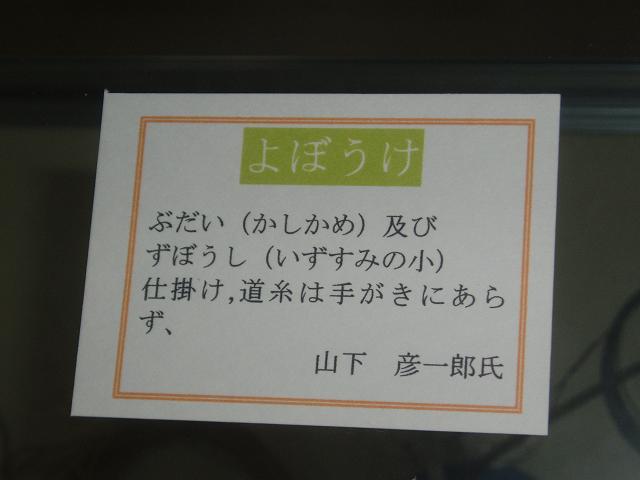 よぼうけ
ぶだい（かしかめ）及び
ずぼうし（いずすみの小）
仕掛け,道糸は手がきにあら
ず、
山下　彦一郎氏